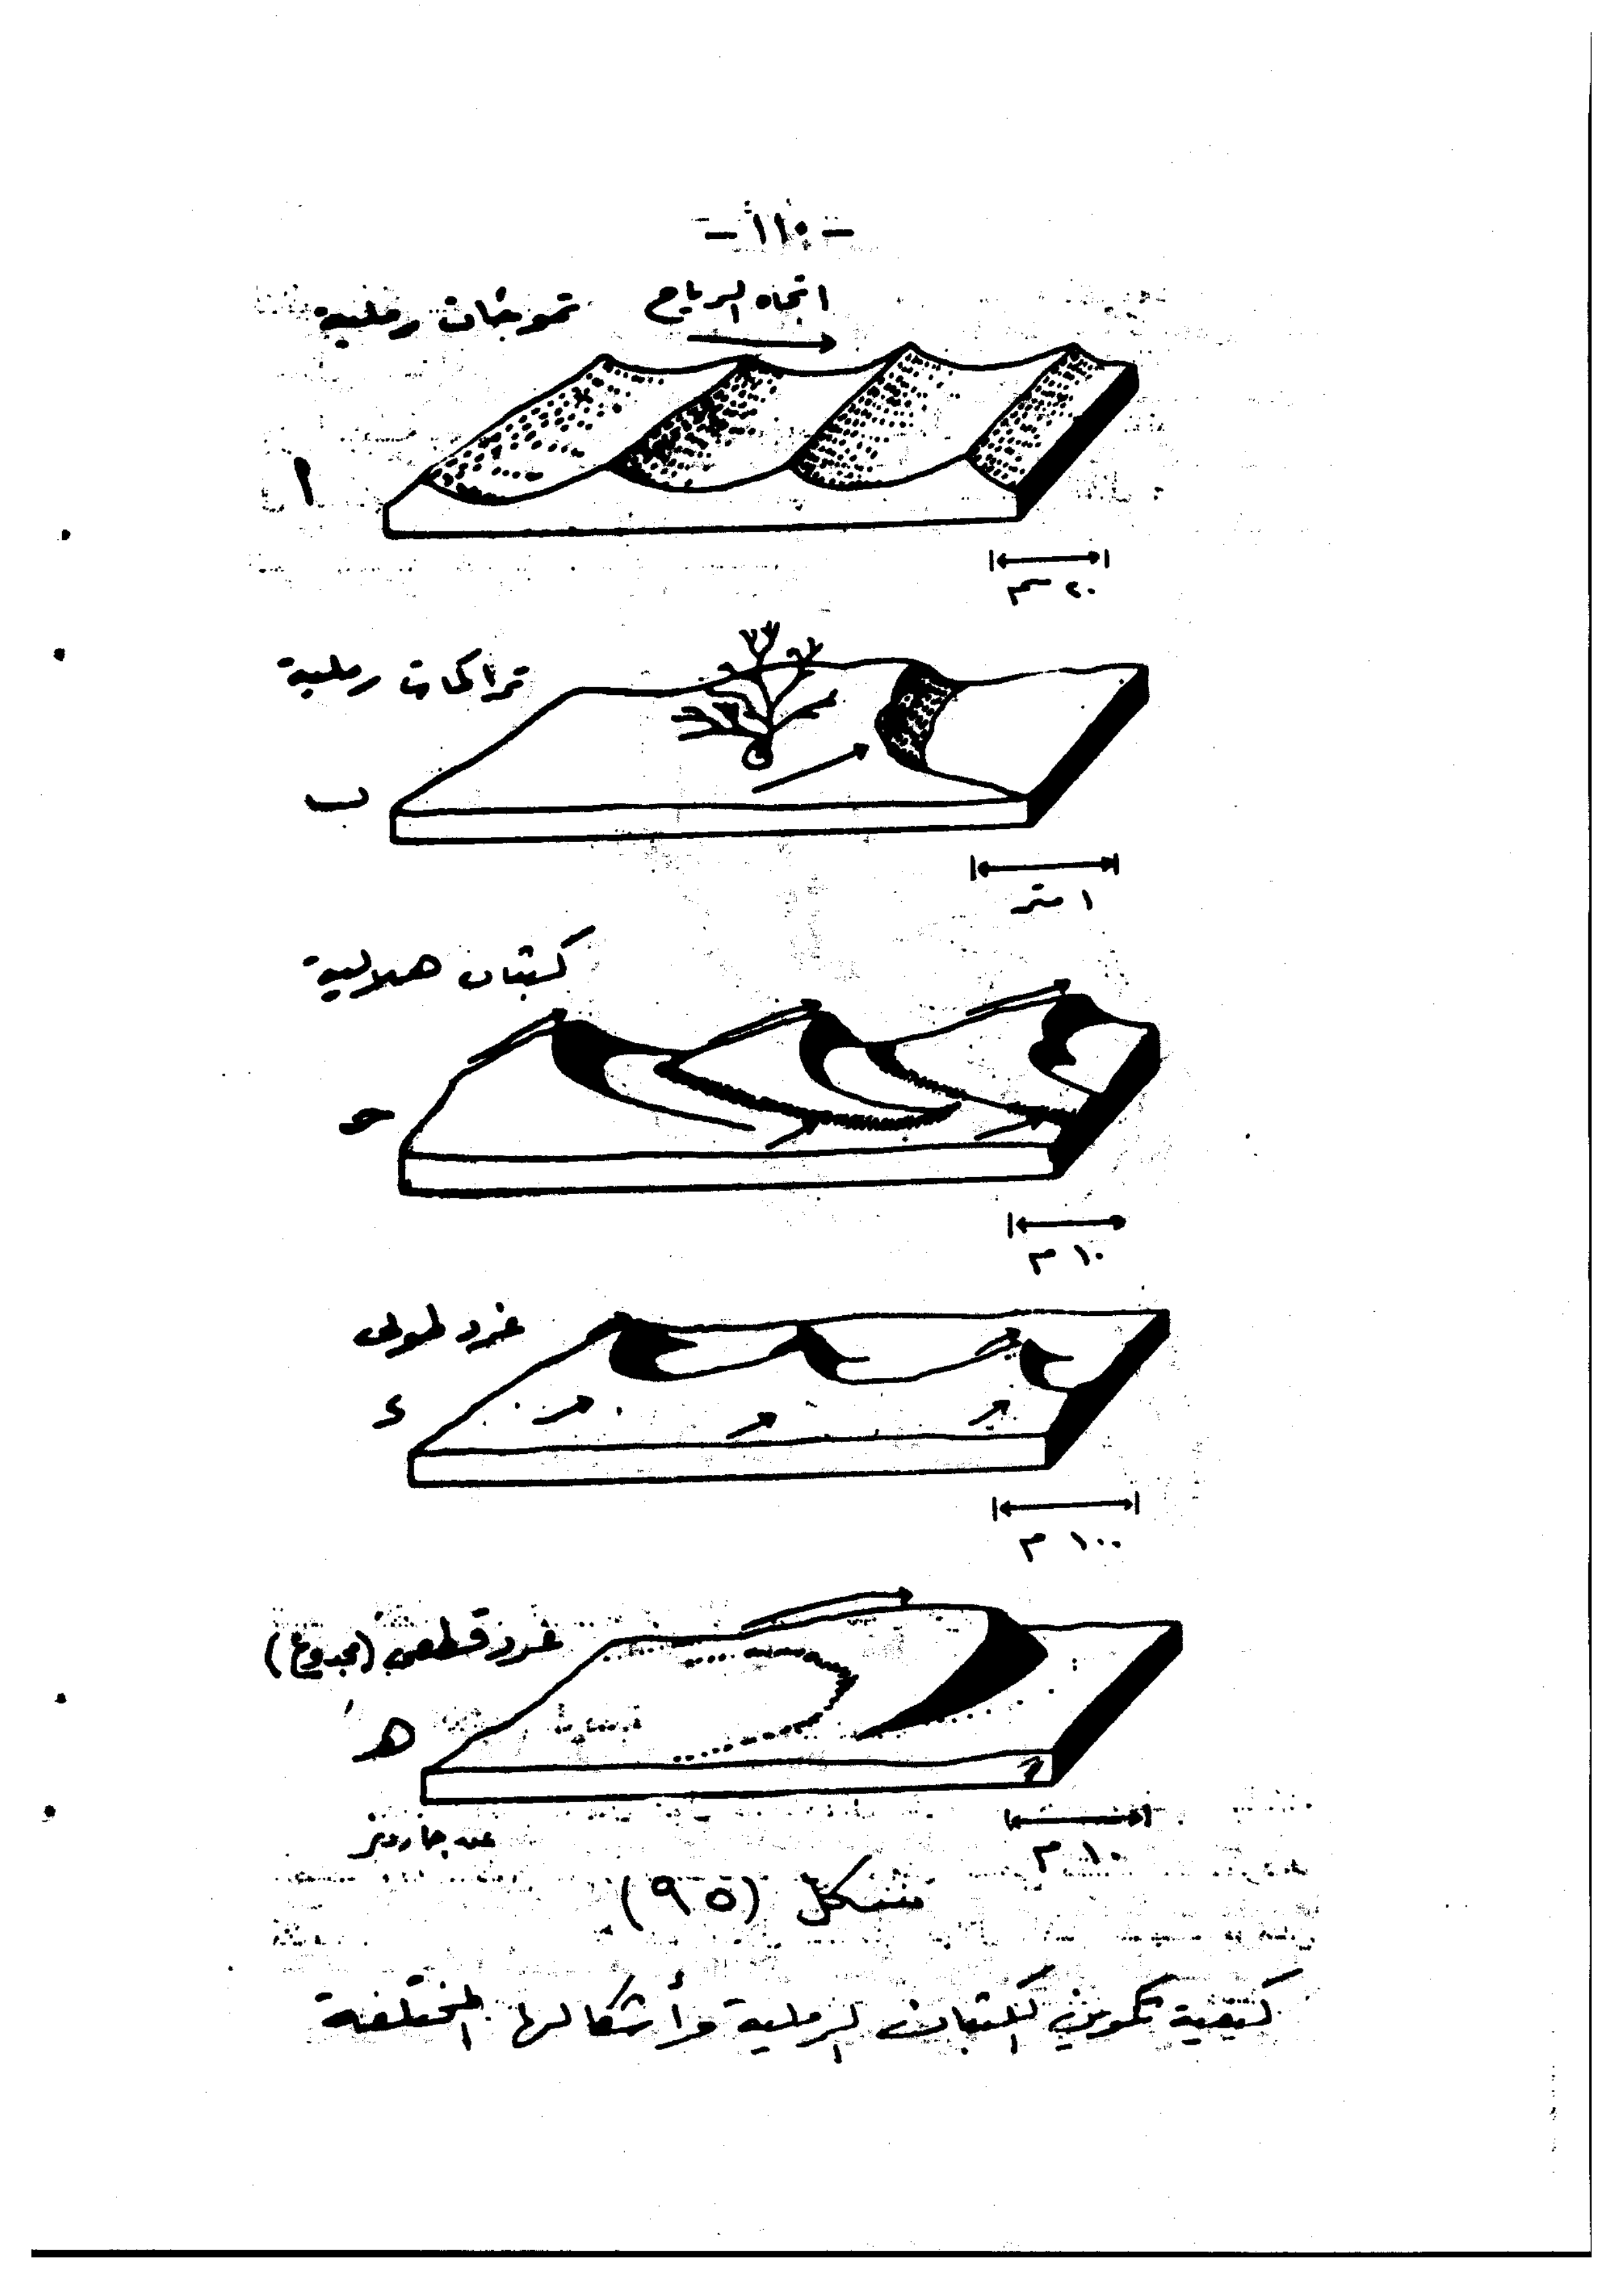 - ١١٥ -
اتجاه الرياح
تموجات رملية
أ
٢٠ سم
تراكمات رملية
ب
١ متر
كثبان هلالية
حـ
١٠ م
غرد طولى
د
١٠٠ م
غرد قطعى (مجدوع)
هـ
١٠ م
عن جاردنر
شكل (٩٥)
كيفية تكوين الكثبان الرملية وأشكالها المختلفة